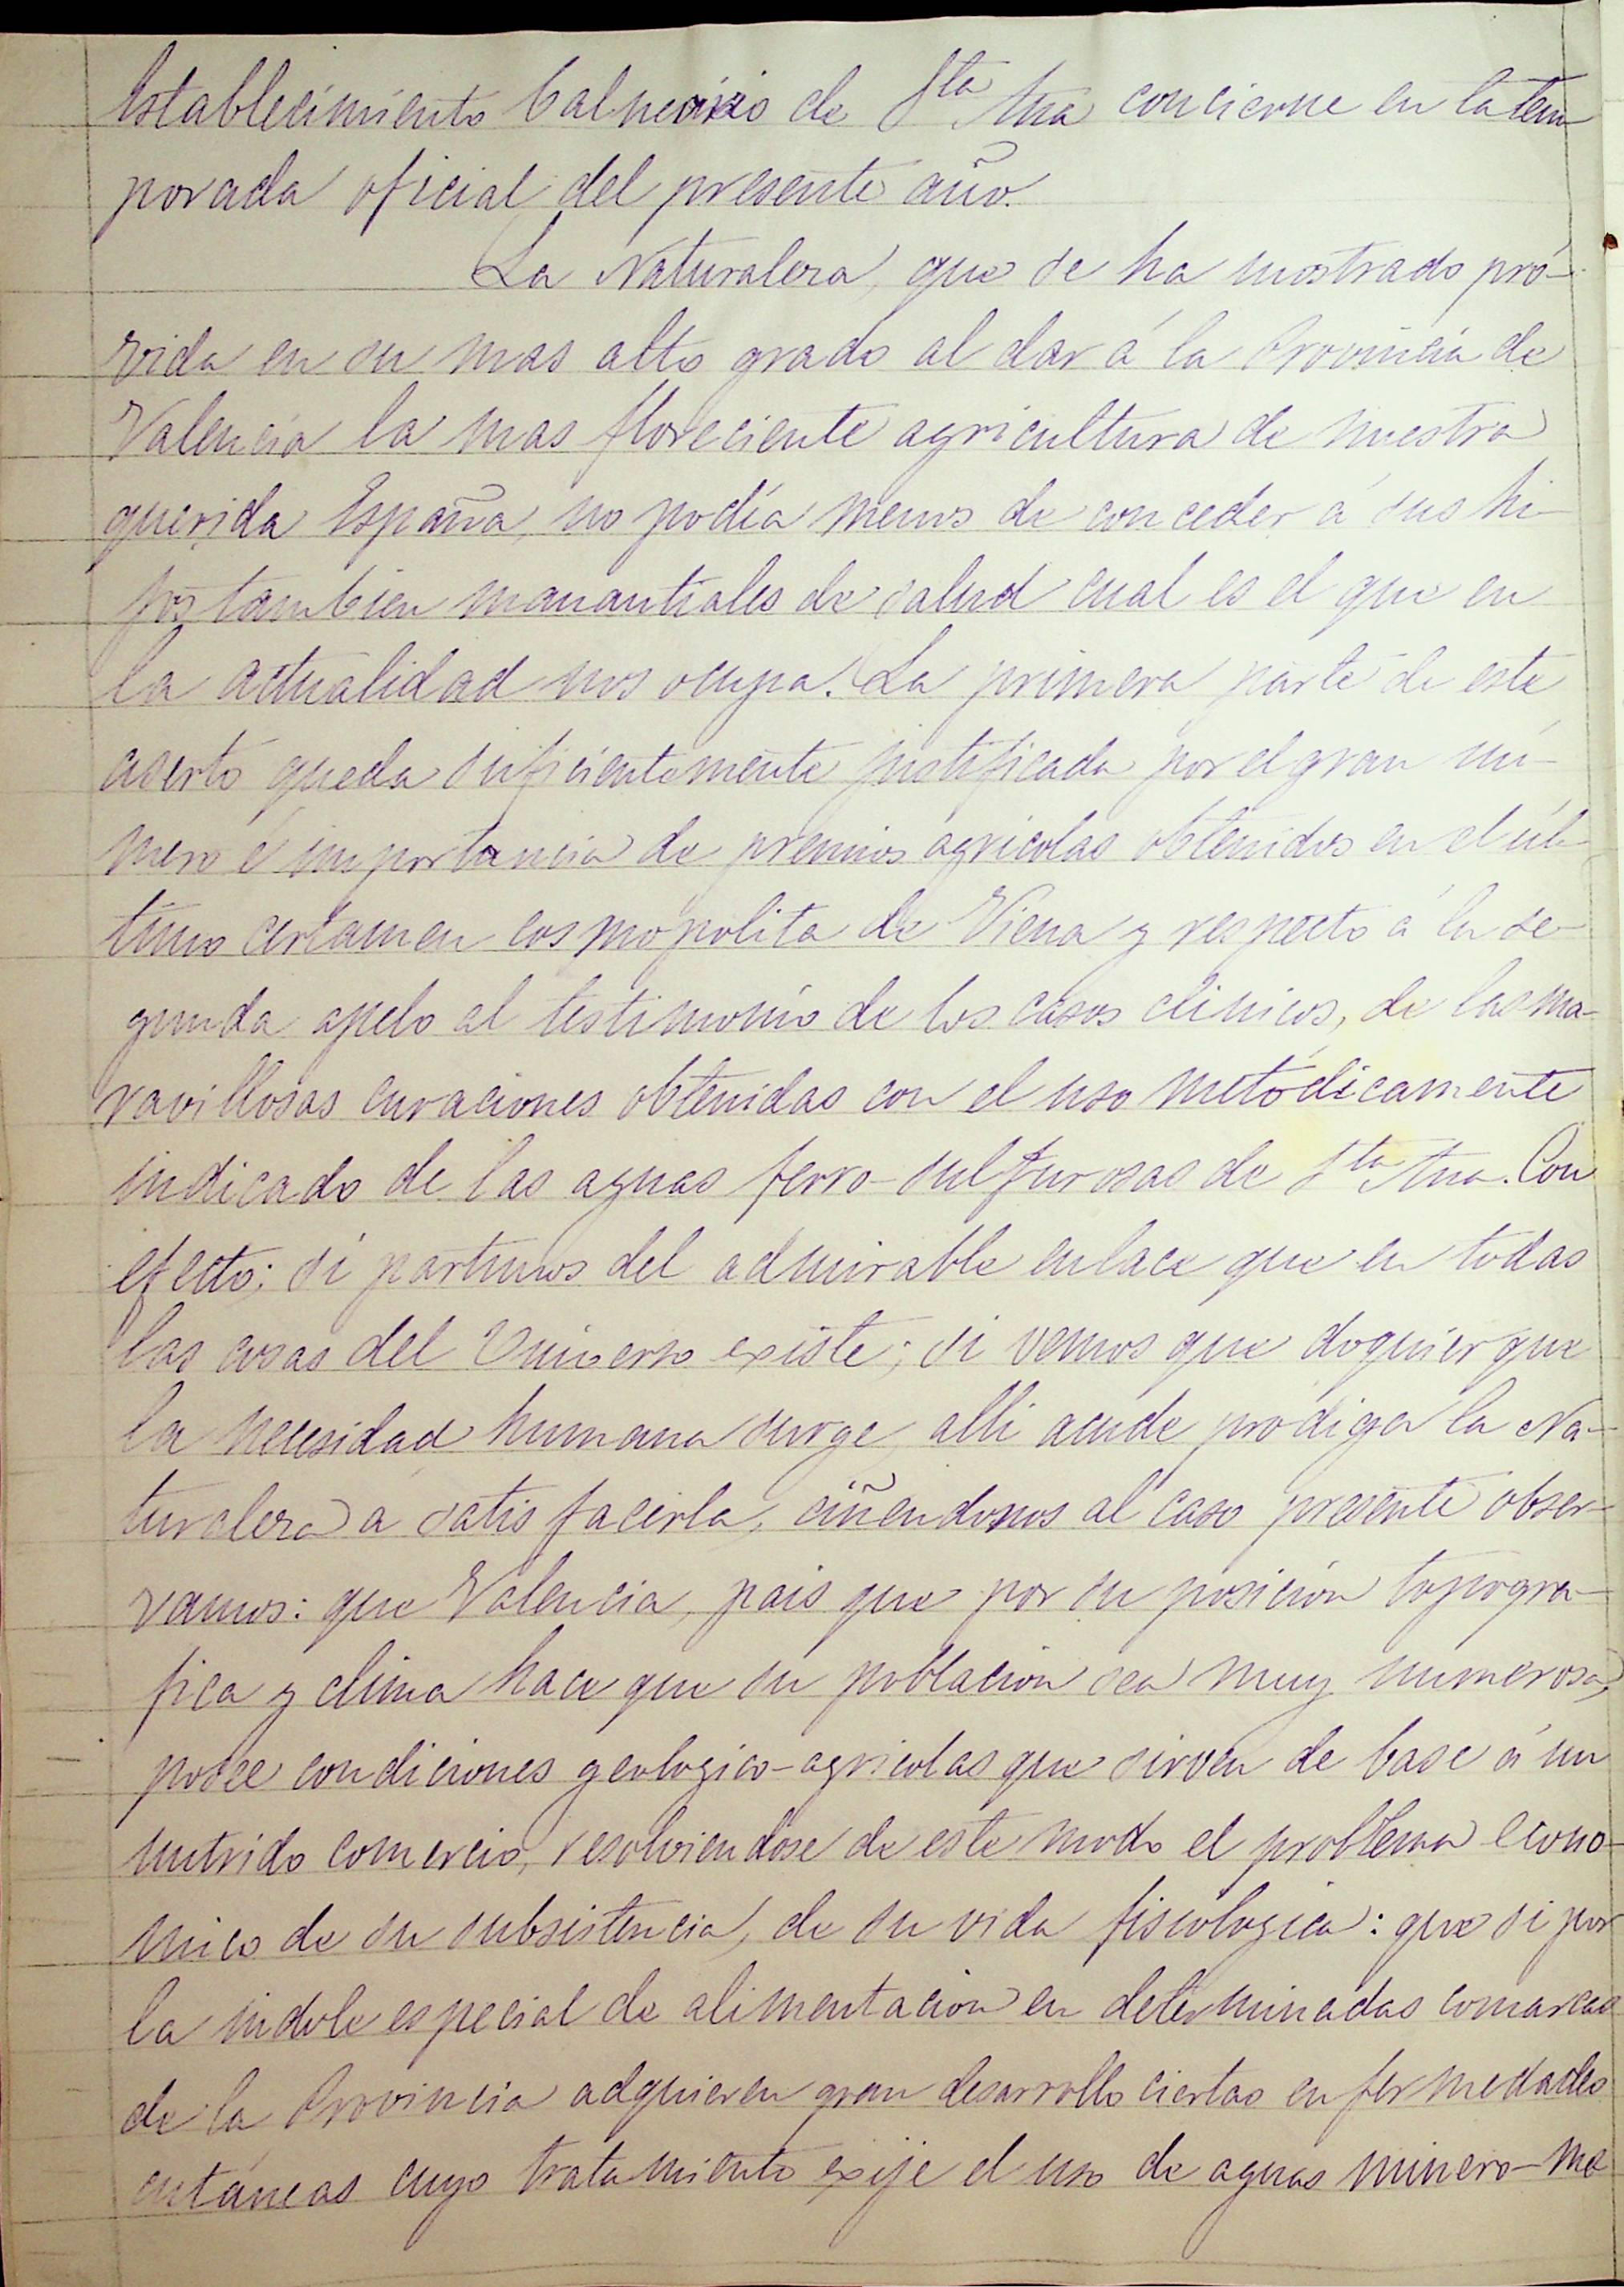 Establecimiento balneario de Sta Ana concierne en la tem
porada oficial del presente año.
La Naturaleza, que se ha mostrado pró-
vida en su mas alto grado al dar á la Provincia de
Valencia la mas floreciente agricultura de nuestra
querida España, no podía menos de conceder á sus hi-
jos tambien manantiales de salud cual es el que en
la actualidad nos ocupa. La primera parte de este
aserto queda suficientemente justificada por el gran nú-
mero é importancia de premios agricolas obtenidos en el úl-
timo certamen cosmopolita de Viena y respecto á la se-
gunda apelo al testimonio de los casos clinicos, de las ma-
ravillosas curaciones obtenidas con el uso metódicamente
indicado de las aguas ferro-sulfurosas de Sta Ana. Con
efecto; si partimos del admirable enlace que en todas
las cosas del Universo existe; si vemos que doquier que
la necesidad humana surge, alli acude pródiga la Na-
turaleza a satisfacerla, ciñendonos al caso presente obser-
vamos: que Valencia, pais que por su posición topogra-
fica y clima hace que su población sea muy numerosa,
posee condiciones geologico-agricolas que sirven de base á un
nutrido comercio, resolviendose de este modo el problema econo-
mico de su subsistencia, de su vida fisiologica: que si por
la indole especial de alimentación en determinadas comarcas
de la Provincia adquieren gran desarrollo ciertas enfermedades
cutáneas cuyo tratamiento exije el uso de aguas minero-me